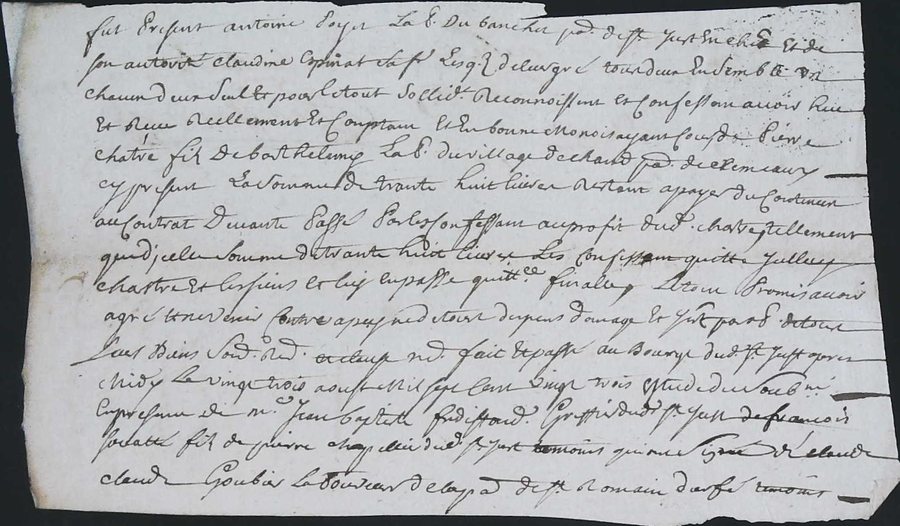 fut Present antoine Poyet La.b. Du bancher pa.d de St. Just En chev. Et de
son autorité claudine Espinat sa fe. Lesq.ls de leur gré tous deux Ensemble un
chacun d'eux seul et pour le tout sollid.t Reconnoissent et Confessent avoir heu
Et Receu Reellement Et Comptant Et En bonne Monois ayant Cours de Pierre
chatre fils De barthelemy La.b. du village de chaud pa.d de
cy present La somme de trante huit livres Restant a payer du Contenu
au Contrat De vante Passé Par les Confessant au profit dud.t chatre tellement
que d'jcelle somme de trante huit livres Les Confessant quitte
chastre Et les siens Et luy en passe quitt.ce finalle Promis avoir
agréé contre a peyne de tous depens domage Et
Leurs Biens fait Et passé au Bourg dud. St. Just apres
Midy Le vingt trois aoust Mil sept Cent vingt trois
En presence de m.e Jean baptiste Greffier dud. St. Just de francois
fils de pierre dud. St. Just temoins qui ont signé de claude
claude Goubier Laboureur de la pa. de St. Romain d'urfé temoins